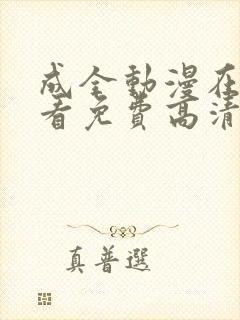 成全動漫在
看免費高清
真普選